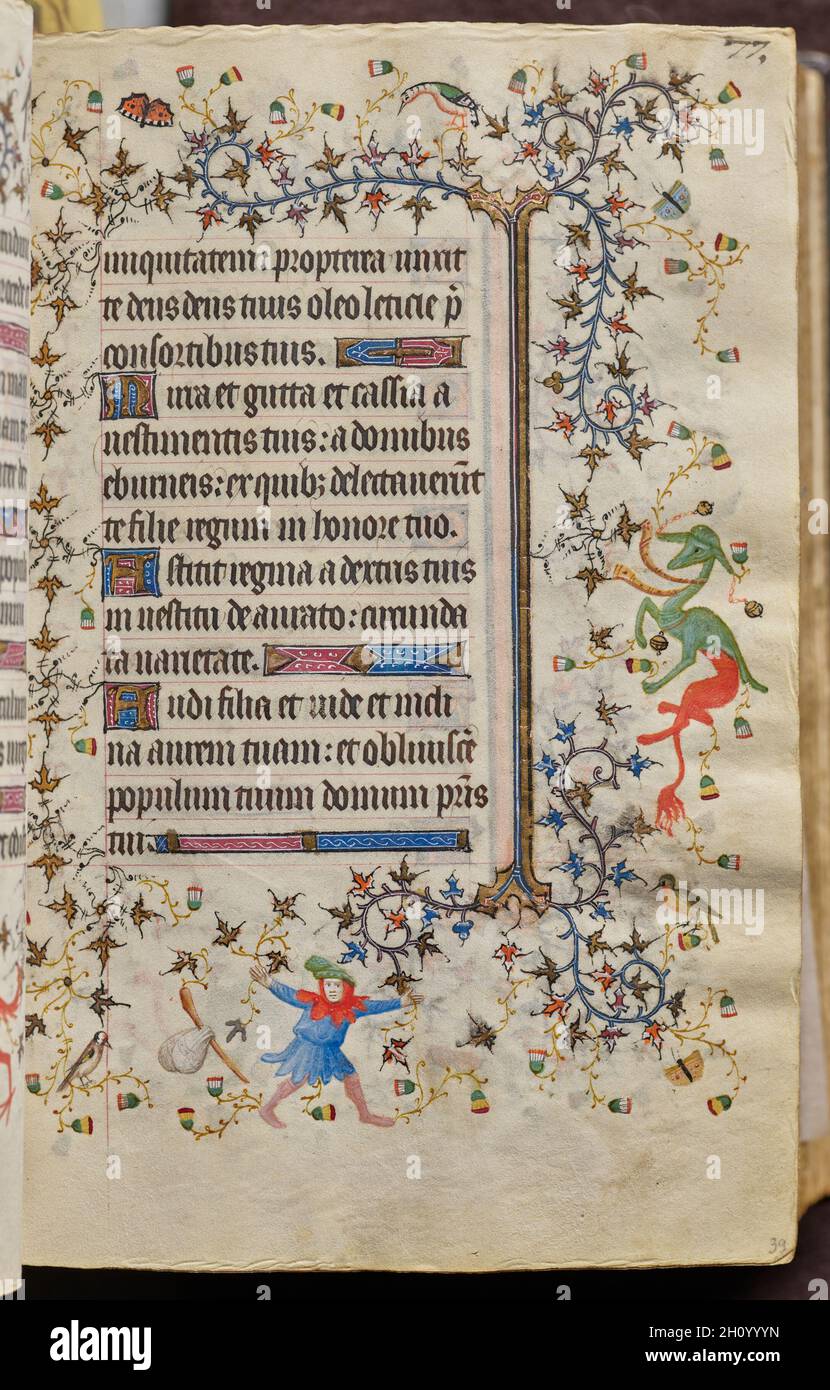 77.
iniquitatem: propterea unxit
te deus deus tuus oleo leticie p̄
consortibus tuis.
Mirra et gutta et cassia a
uestimentis tuis: a domibus
eburneis: ex quib; delectauerūt
te filie regum in honore tuo.
Astitit regina a dextris tuis
in uestitu de aurato: circunda
ta uarietate.
Audi filia et uide et incli
na aurem tuam: et obliuisc̄e
populum tuum domum pr̄is
tui.
39
alamy
Image ID: 2H0YYYN
www.alamy.com